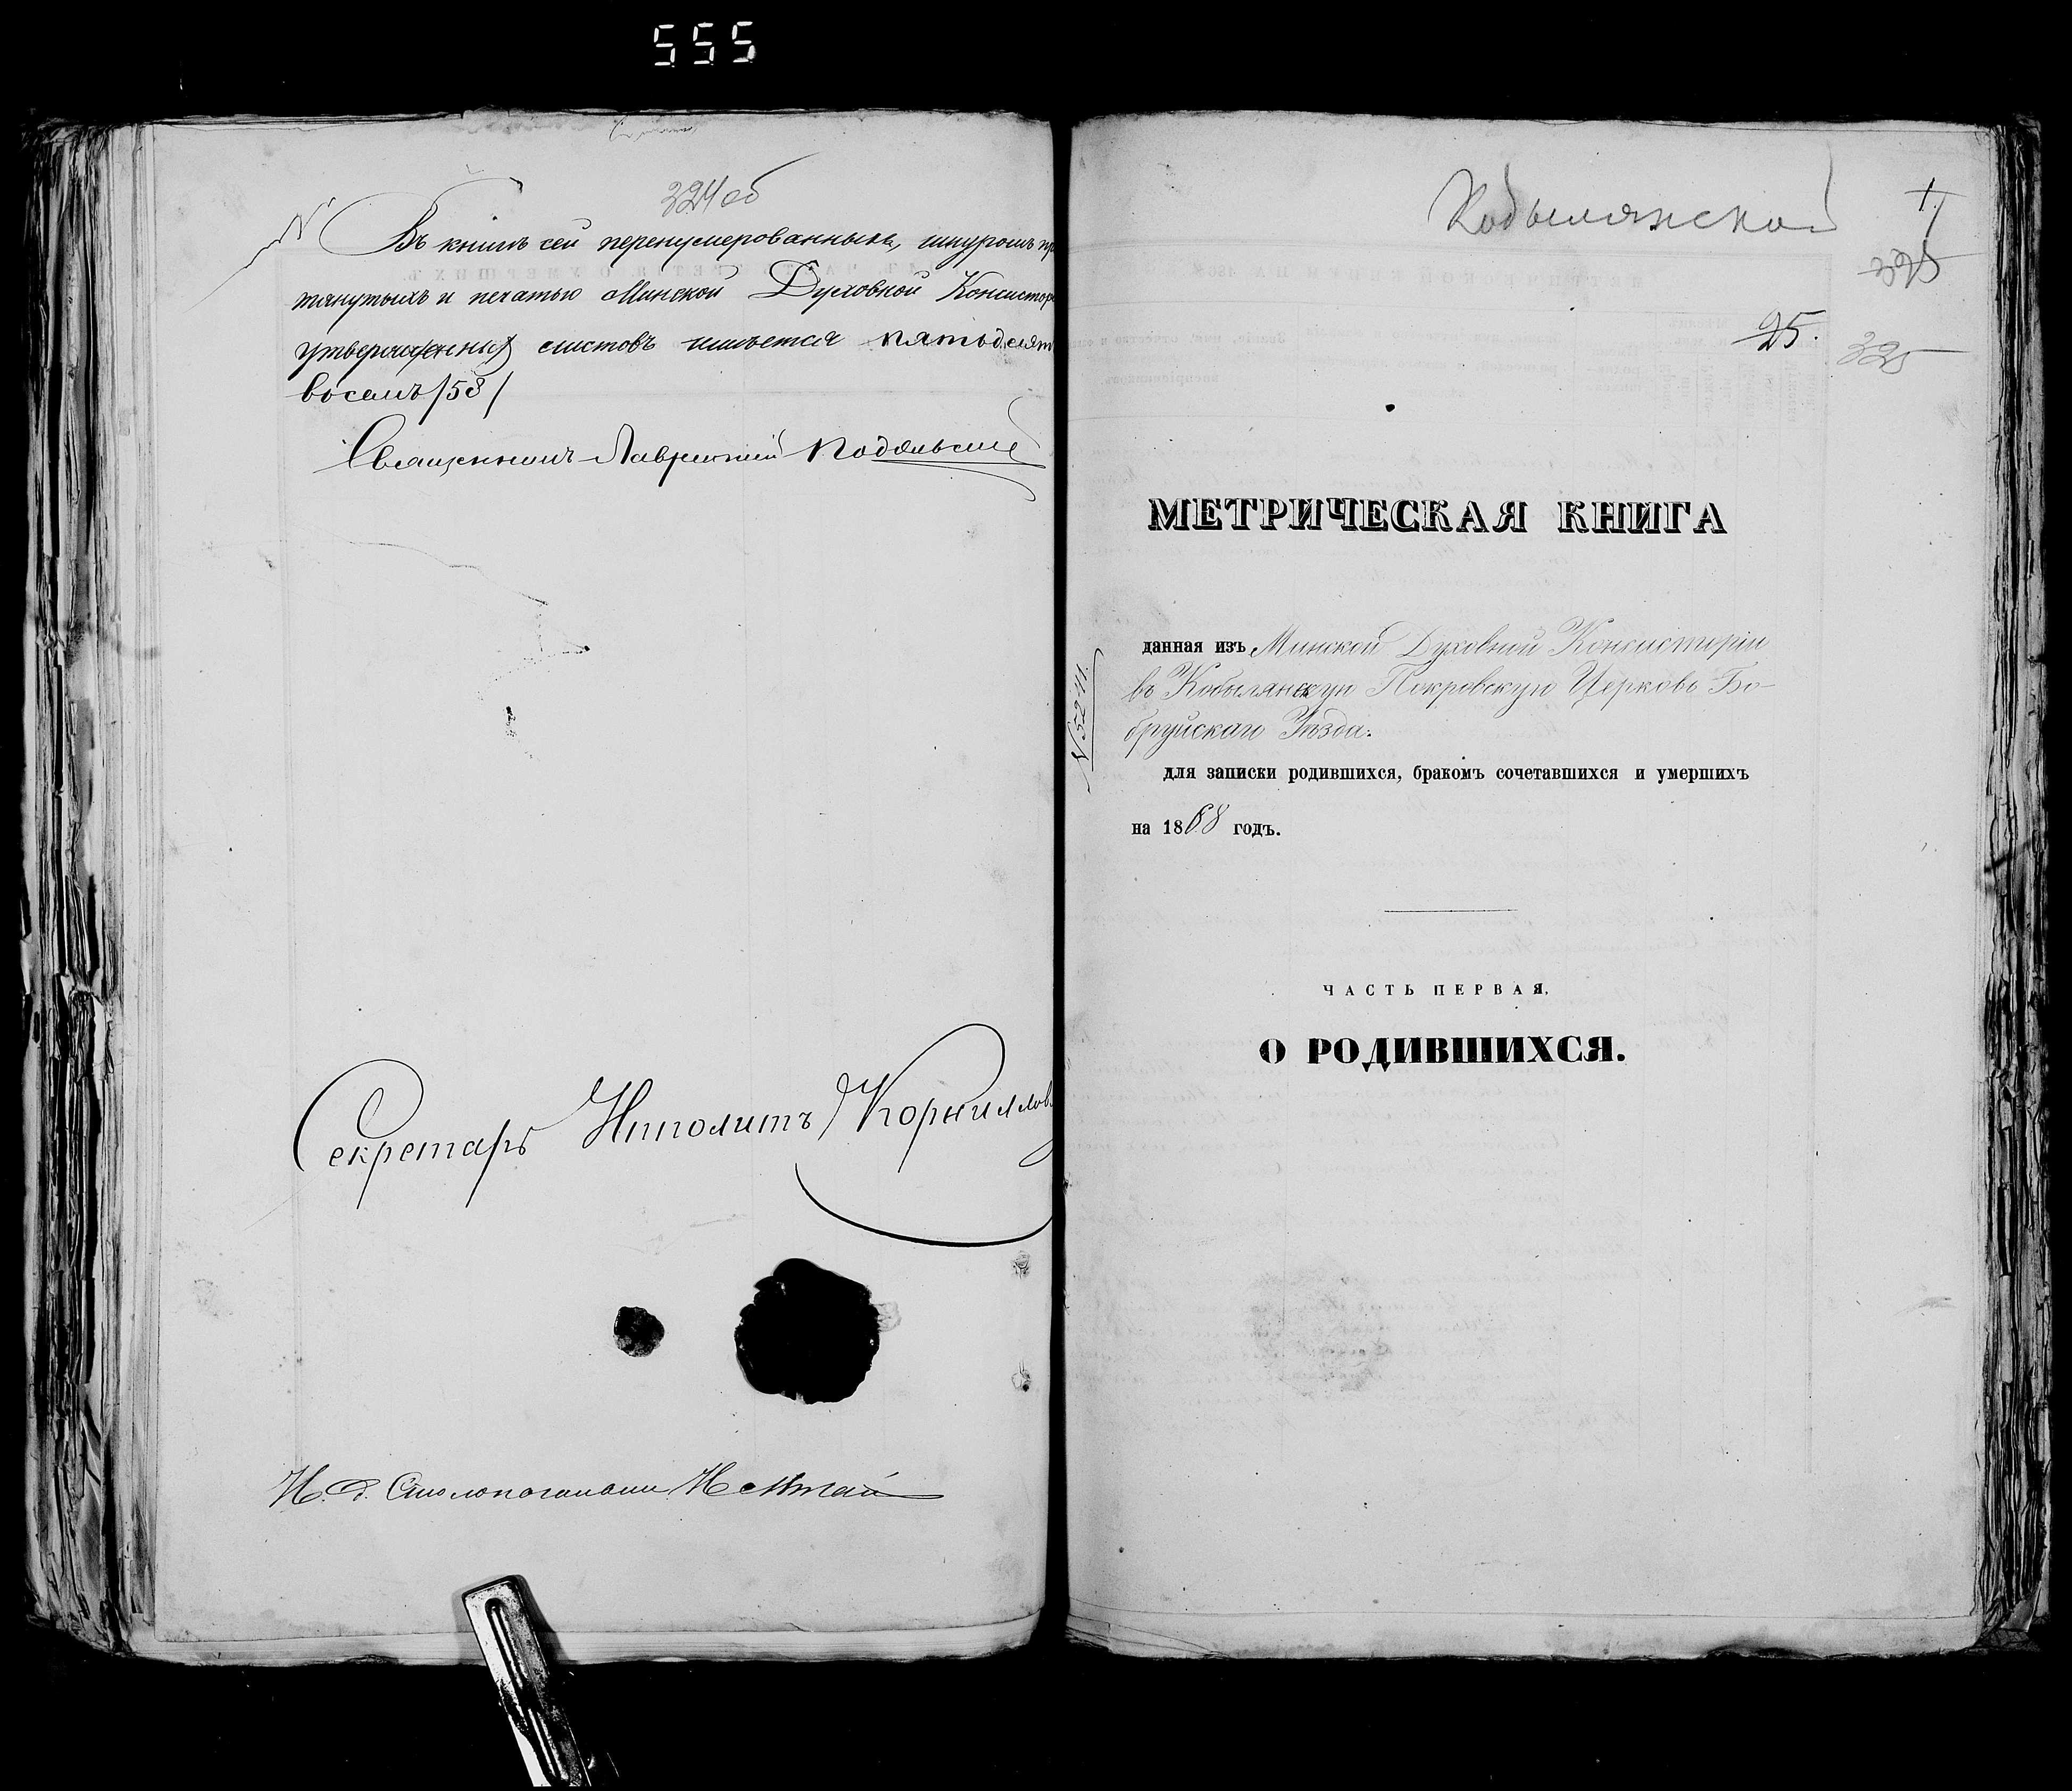 555
324 об
Въ книгѣ сей перенумерованныхъ, шнуромъ
тянутыхъ и печатью Минской Духовной Консистор
утвержденныхъ листовъ имѣется пятьдесят
восемь /58/
Священникъ Лаврентий Подольский
Секретарь Ипполитъ Корниллов
И. д. Столоначальника
Кобылянской
1.
325
25.
325
МЕТРИЧЕСКАЯ КНИГА
данная изъ Минской Духовной Консисторіи
въ Кобылянскую Покровскую Церковь Бо-
бруйскаго Уѣзда.
№ 5241.
для записки родившихся, бракомъ сочетавшихся и умершихъ
на 1868 годъ.
ЧАСТЬ ПЕРВАЯ,
О РОДИВШИХСЯ.